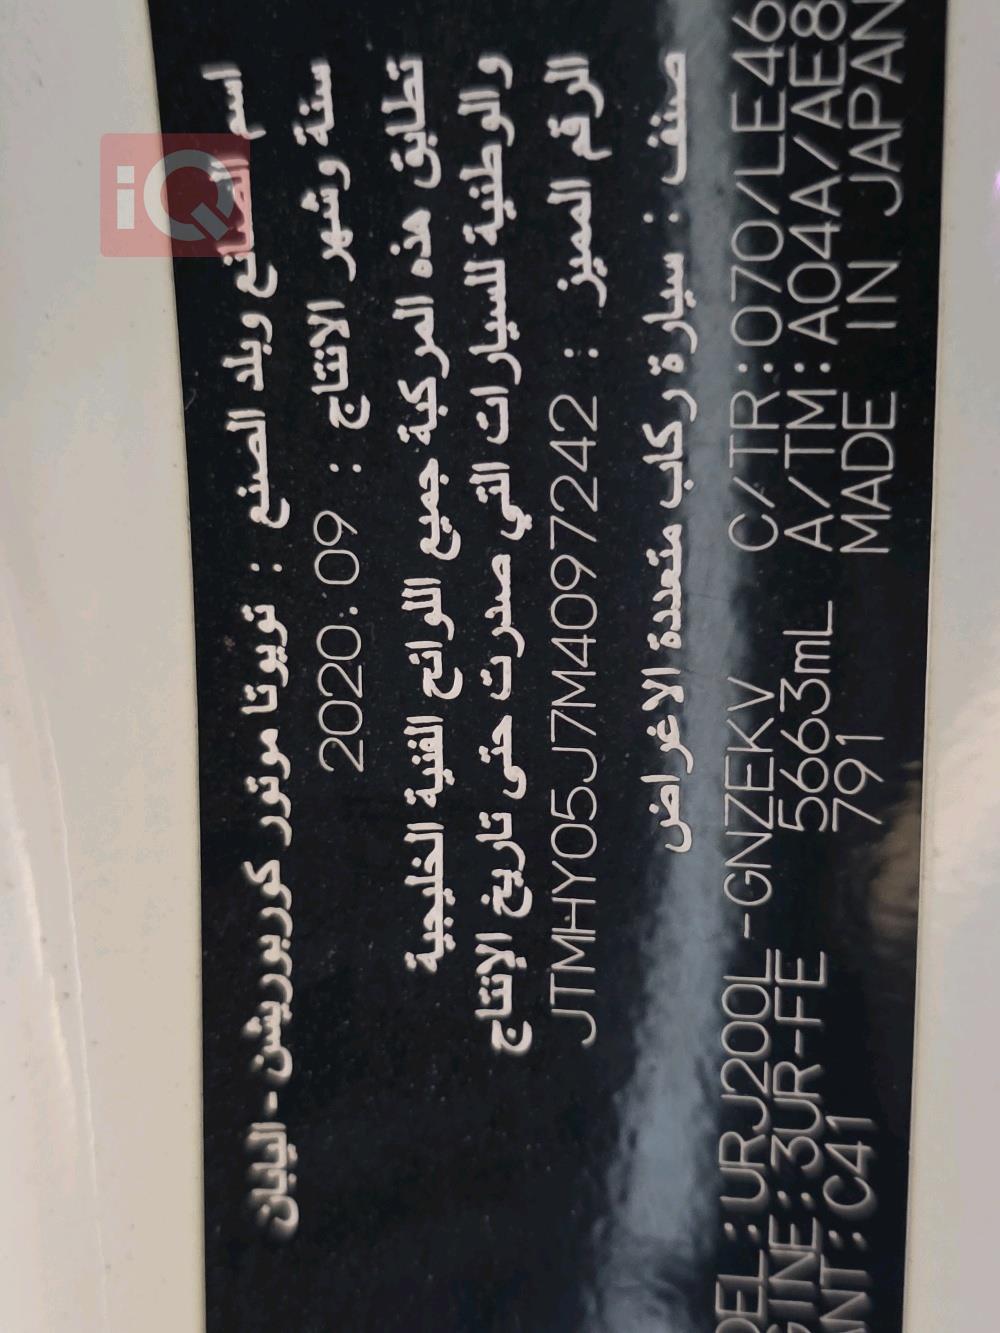 iQ
اسم الصانع وبلد الصنع : تويوتا موتور كوربوريشن - اليابان
سنة وشهر الانتاج : 2020.09
تطابق هذه المركبة جميع اللوائح الفنية الخليجية
والوطنية للسيارات التي صدرت حتى تاريخ الإنتاج
الرقم المميز : JTMHY05J7M4097242
صنف : سيارة ركاب متعددة الاغراض
DEL:URJ200L-GNZEKV C/TR:070/LE46
GINE:3UR-FE 5663mL A/TM:A04A/AE8
ANT:C41 791 MADE IN JAPAN